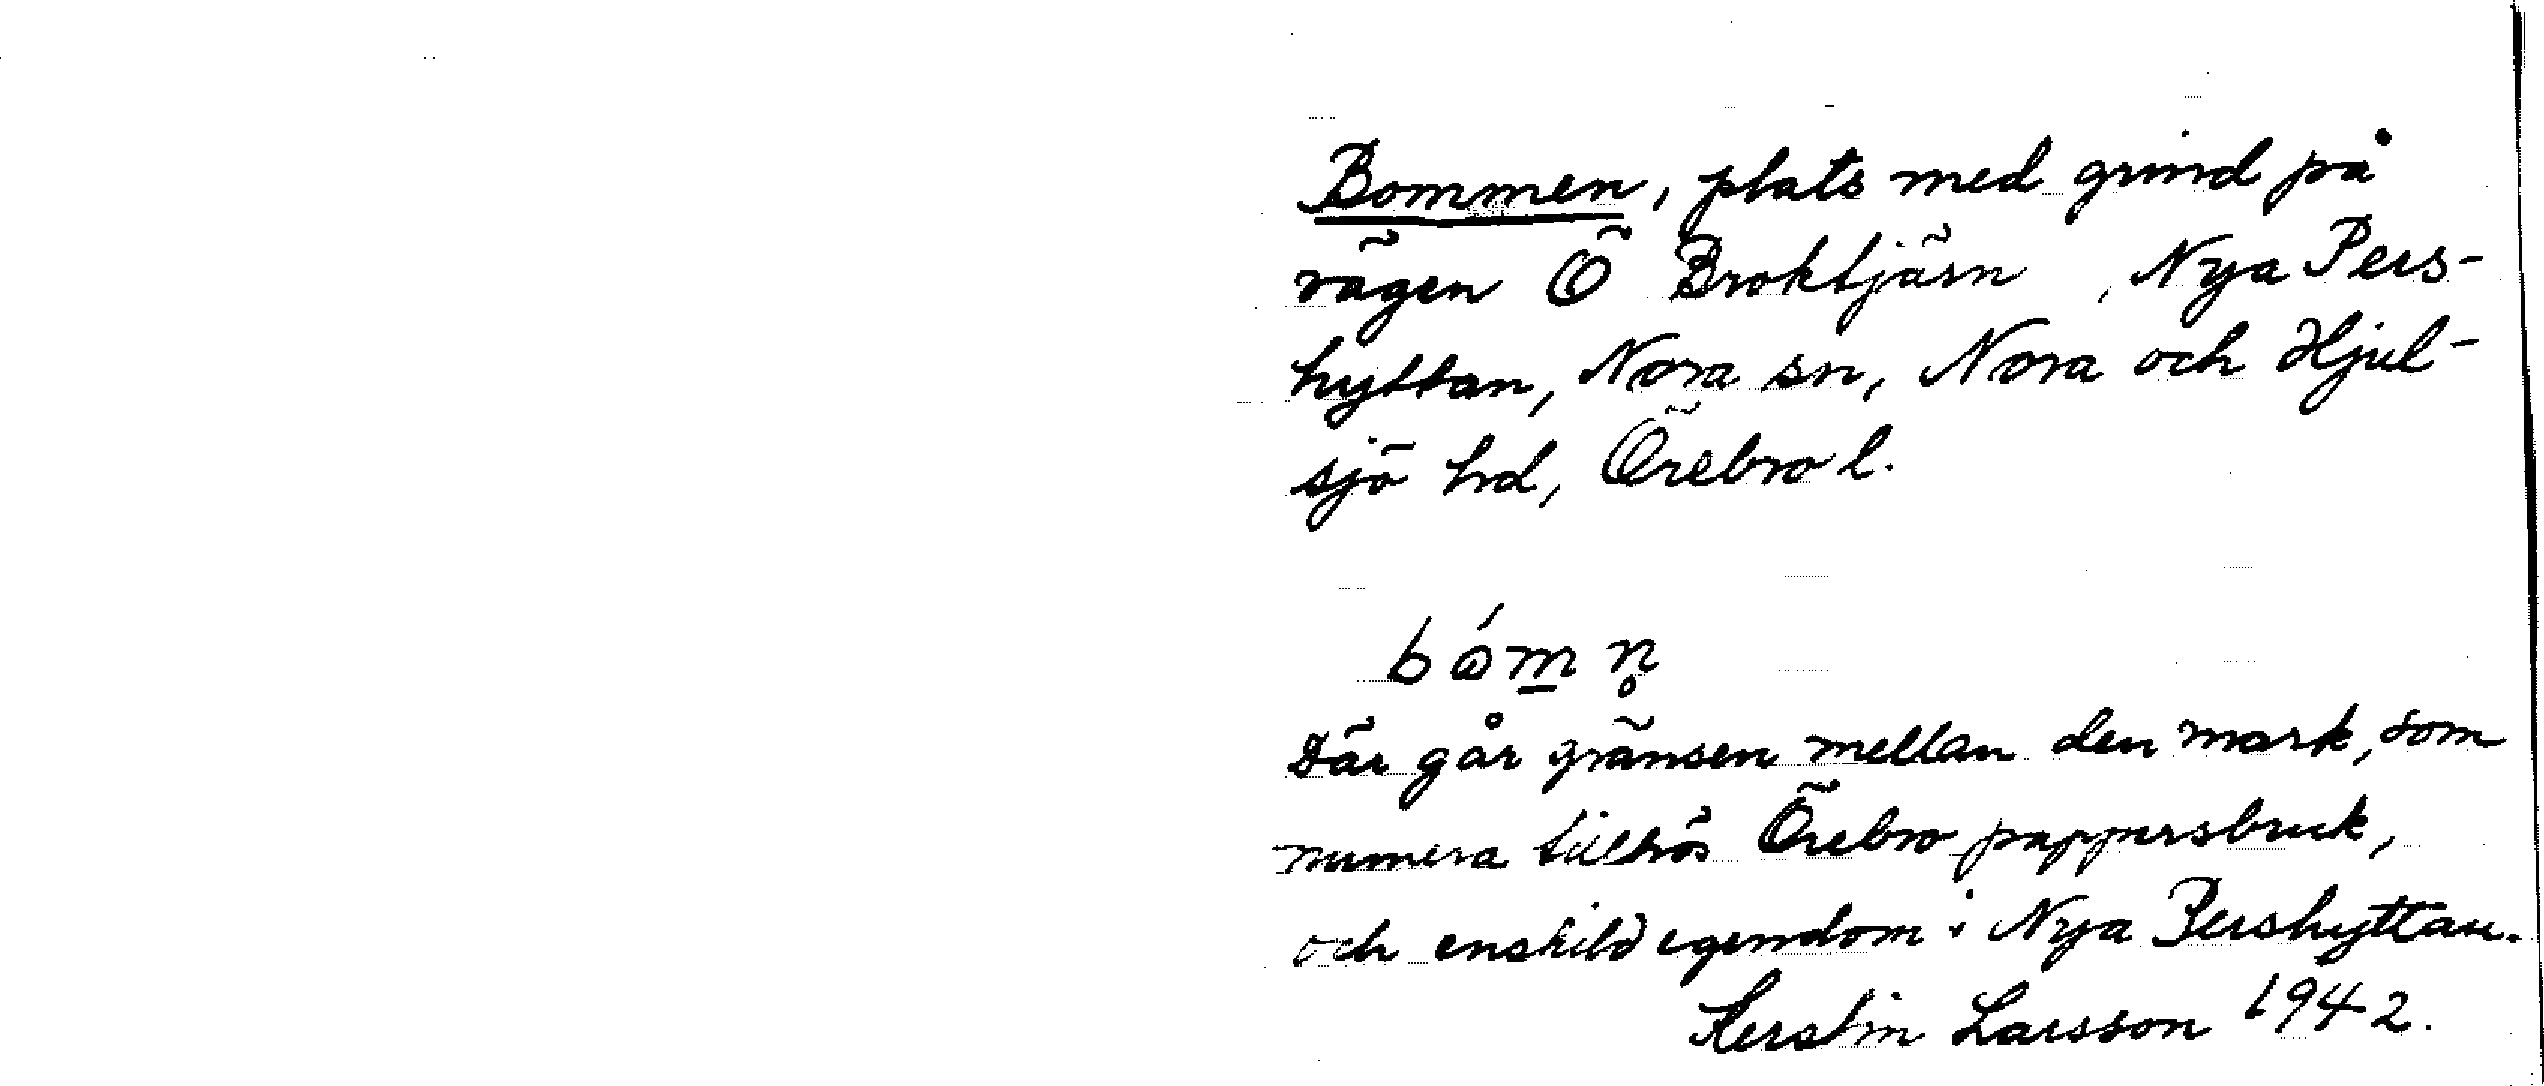 Bommen, plats med grind på
vägen Ö Broktjärn, Nya Pers-
hyttan, Nora sn, Nora och Hjul-
sjö hd, Örebro l.
bóm̲ n̥
Där går gränsen mellan den mark, som
numera tillhör Örebro pappersbruk,
och enskild egendom i Nya Pershyttan.
Kerstin Larsson 1942.